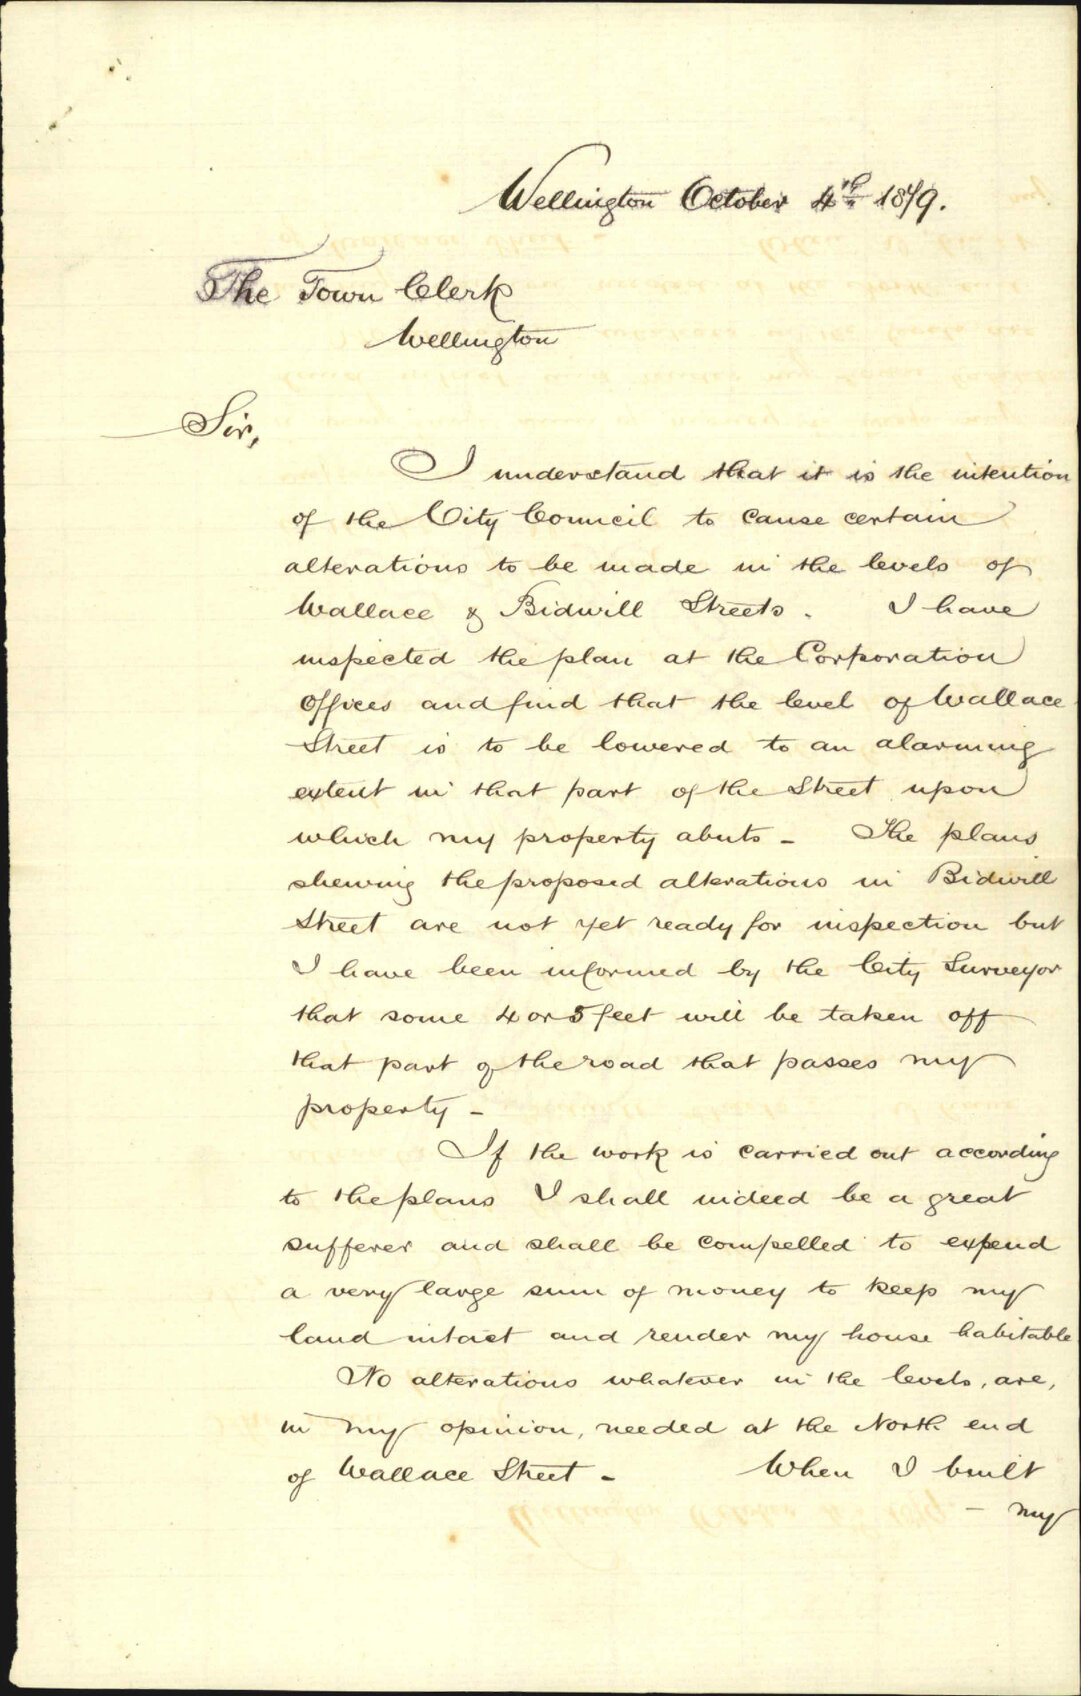 Wellington October 4th 1879.
The Town Clerk
Wellington
Sir,
I understand that it is the intention
of the City Council to cause certain
alterations to be made in the levels of
Wallace & Bidwill Streets. I have
inspected the plan at the Corporation
Offices and find that the level of Wallace
Street is to be lowered to an alarming
extent in that part of the Street upon
which my property abuts - The plans
shewing the proposed alterations in Bidwill
Street are not yet ready for inspection but
I have been informed by the City Surveyor
that some 4 or 5 feet will be taken off
that part of the road that passes my
property -
If the work is carried out according
to the plans I shall indeed be a great
sufferer and shall be compelled to expend
a very large sum of money to keep my
land intact and render my house habitable
No alterations whatever in the levels, are,
in my opinion, needed at the North end
of Wallace Street - When I built
- my